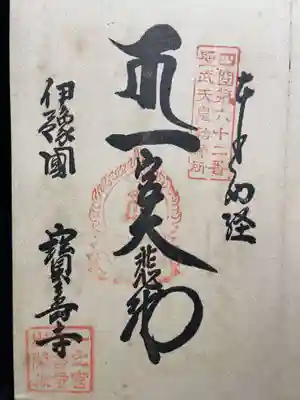 奉納経
四國第六十二番
聖武天皇勅願所
一宮大悲殿
伊豫國 寶壽寺